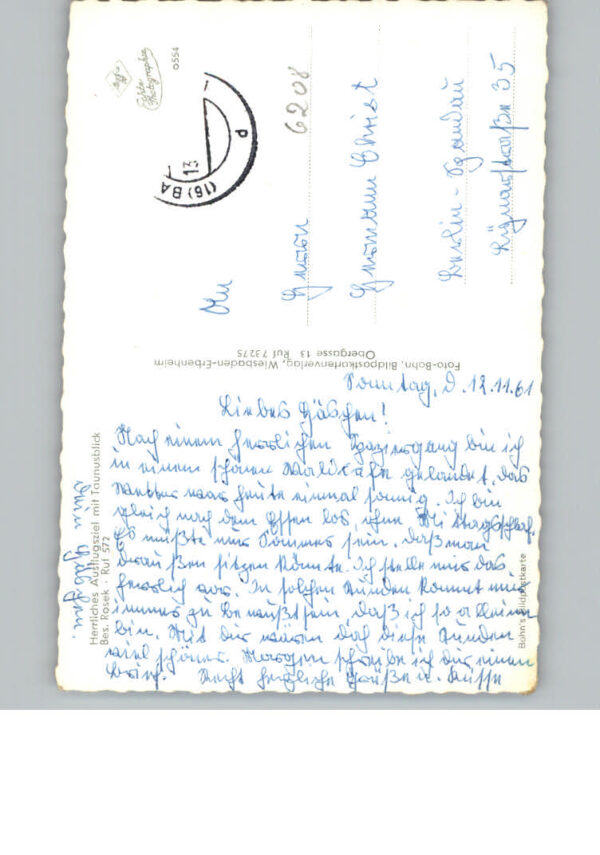 Sonntag, d. 12.11.61
Liebes Häschen!
Nach einem herrlichen Spaziergang bin ich
in einem schönen Waldkaffe gelandet. Das
Wetter war heute einmal sonnig. Ich bin
gleich nach dem Essen los, ohne Mittagschlaf.
Es müßte nur Sommer sein, daß man
draußen sitzen könnte. Ich stelle mir das
herrlich vor. In solchen Stunden kommt mir
immer zu Bewußtsein, daß ich so alleine
bin. Mit dir wären doch diese Stunden
viel schöner. Morgen schreibe ich dir einen
Brief. Recht herzliche Grüße u. Küsse
Dein
Herrliches Ausflugsziel mit Taunusblick
Bes. Rosek · Ruf 572
Bohn's Bildpostkarte
Foto-Bohn, Bildpostkartenverlag, Wiesbaden-Erbenheim
Obergasse 13 Ruf 73275
Echte
Photographie
0554
(16) BA
13
d
6208
An
Herrn
Hermann Christ
Berlin-Spandau
35